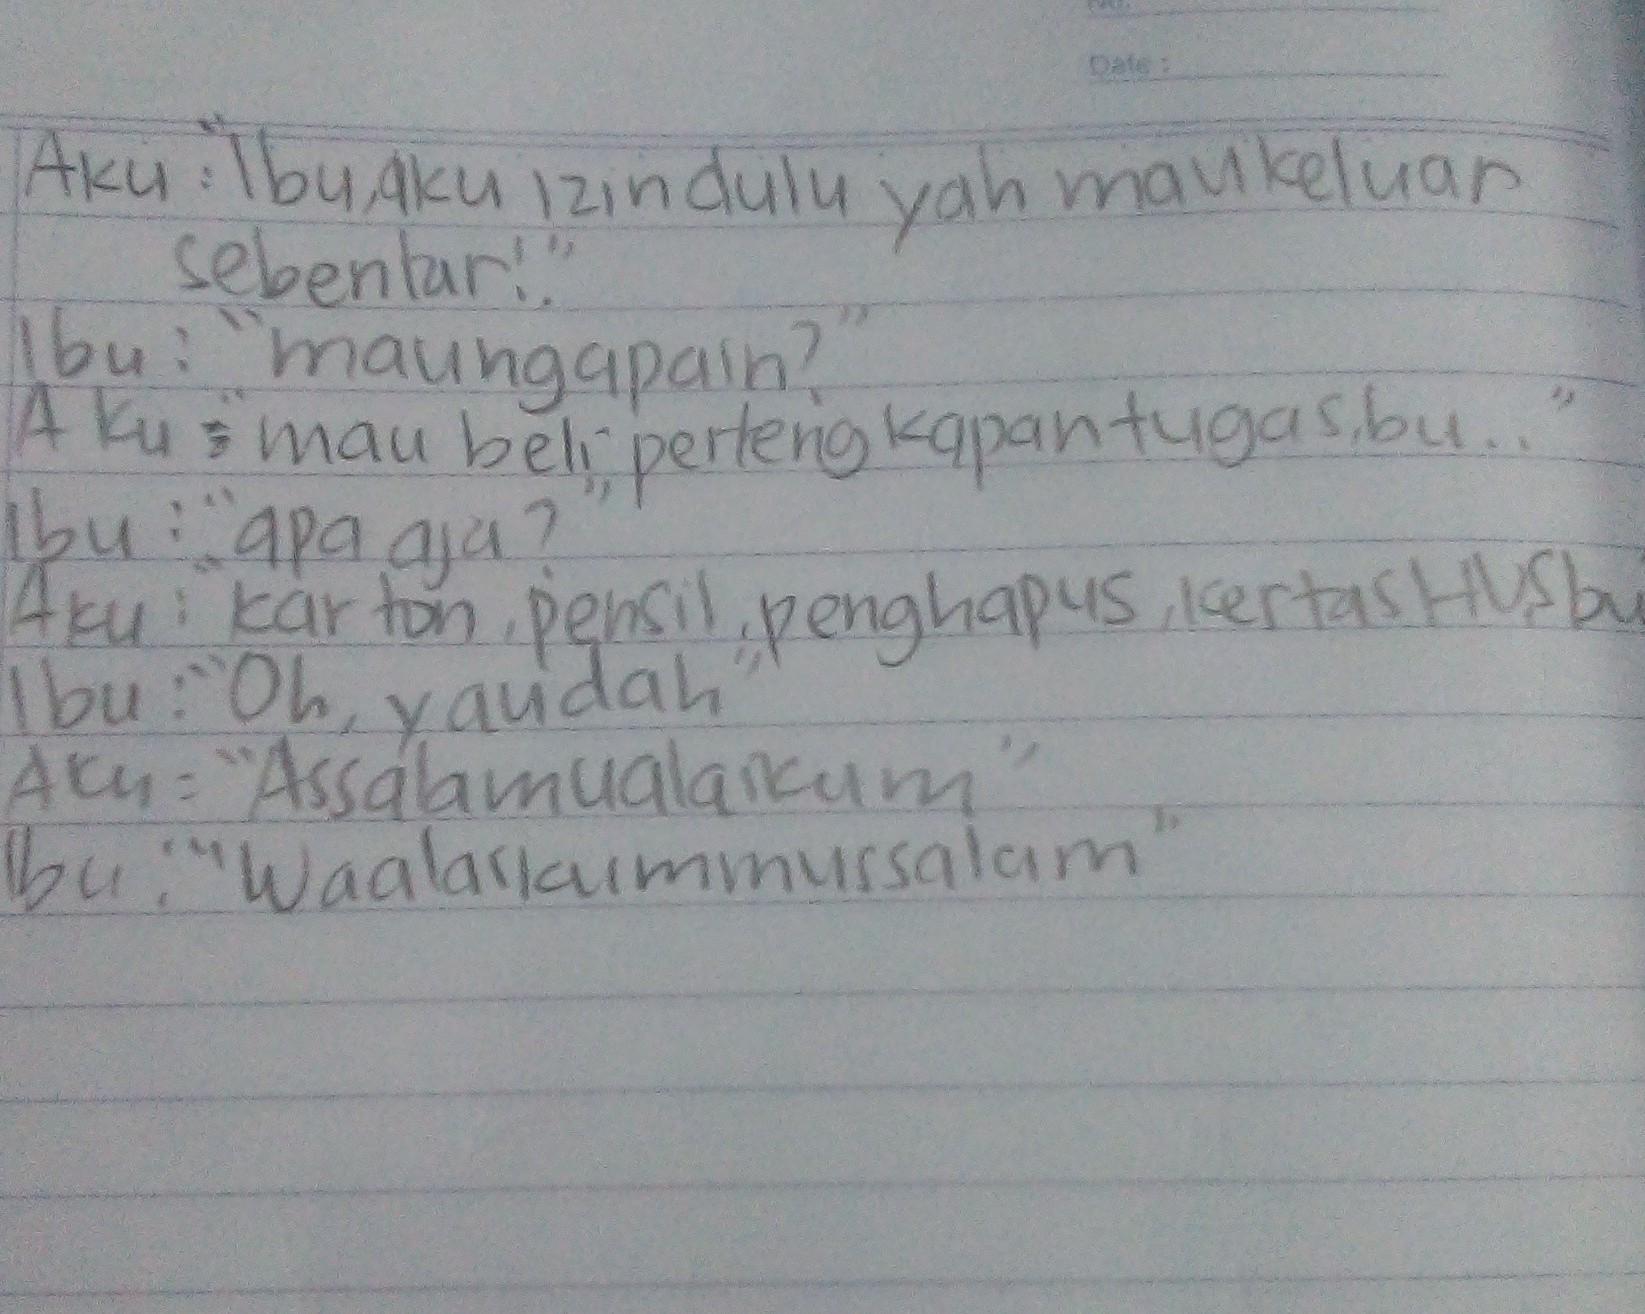 No.
Date :
Aku : "Ibu, aku izin dulu yah mau keluar
sebentar!."
Ibu : "maungapain?"
Aku : "mau beli perlengkapan tugas, bu..."
Ibu : "apa aja?"
Aku : "karton, pensil, penghapus, kertas HVS bu
Ibu : "Oh, yaudah"
Aku = "Assalamualaikum"
Ibu : "Waalaikummussalam"